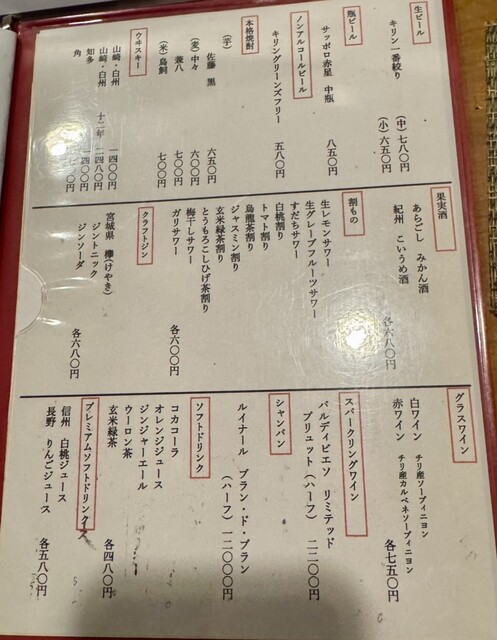 生ビール
キリン一番絞り
(中) 七八〇円
(小) 六五〇円
瓶ビール
サッポロ赤星 中瓶 八五〇円
ノンアルコールビール
キリングリーンズフリー 五八〇円
本格焼酎
(芋) 佐藤 黒 六五〇円
(麦) 中々 六〇〇円
兼八 七〇〇円
(米) 鳥飼 七〇〇円
ウヰスキー
山崎・白州 一四〇〇円
山崎・白州 十二年 二四八〇円
知多 一四〇〇円
角
果実酒
あらごし みかん酒
紀州 こいうめ酒
各六八〇円
割もの
生レモンサワー
生グレープフルーツサワー
すだちサワー
白桃割り
トマト割り
烏龍茶割り
ジャスミン割り
玄米緑茶割り
とうもろこしひげ茶割り
梅干しサワー
ガリサワー
各六〇〇円
クラフトジン
宮城県 欅(けやき)
ジントニック
ジンソーダ
各六八〇円
グラスワイン
白ワイン チリ産ソーブィニヨン
赤ワイン チリ産カルベネソーブィニヨン
各七五〇円
スパークリングワイン
バルディビエソ リミテッド
ブリュット(ハーフ) 二二〇〇円
シャンパン
ルイナール ブラン・ド・ブラン
(ハーフ) 一二〇〇〇円
ソフトドリンク
コカコーラ
オレンジジュース
ジンジャーエール
ウーロン茶
玄米緑茶
各四八〇円
プレミアムソフトドリンクス
信州 白桃ジュース
長野 りんごジュース
各五八〇円